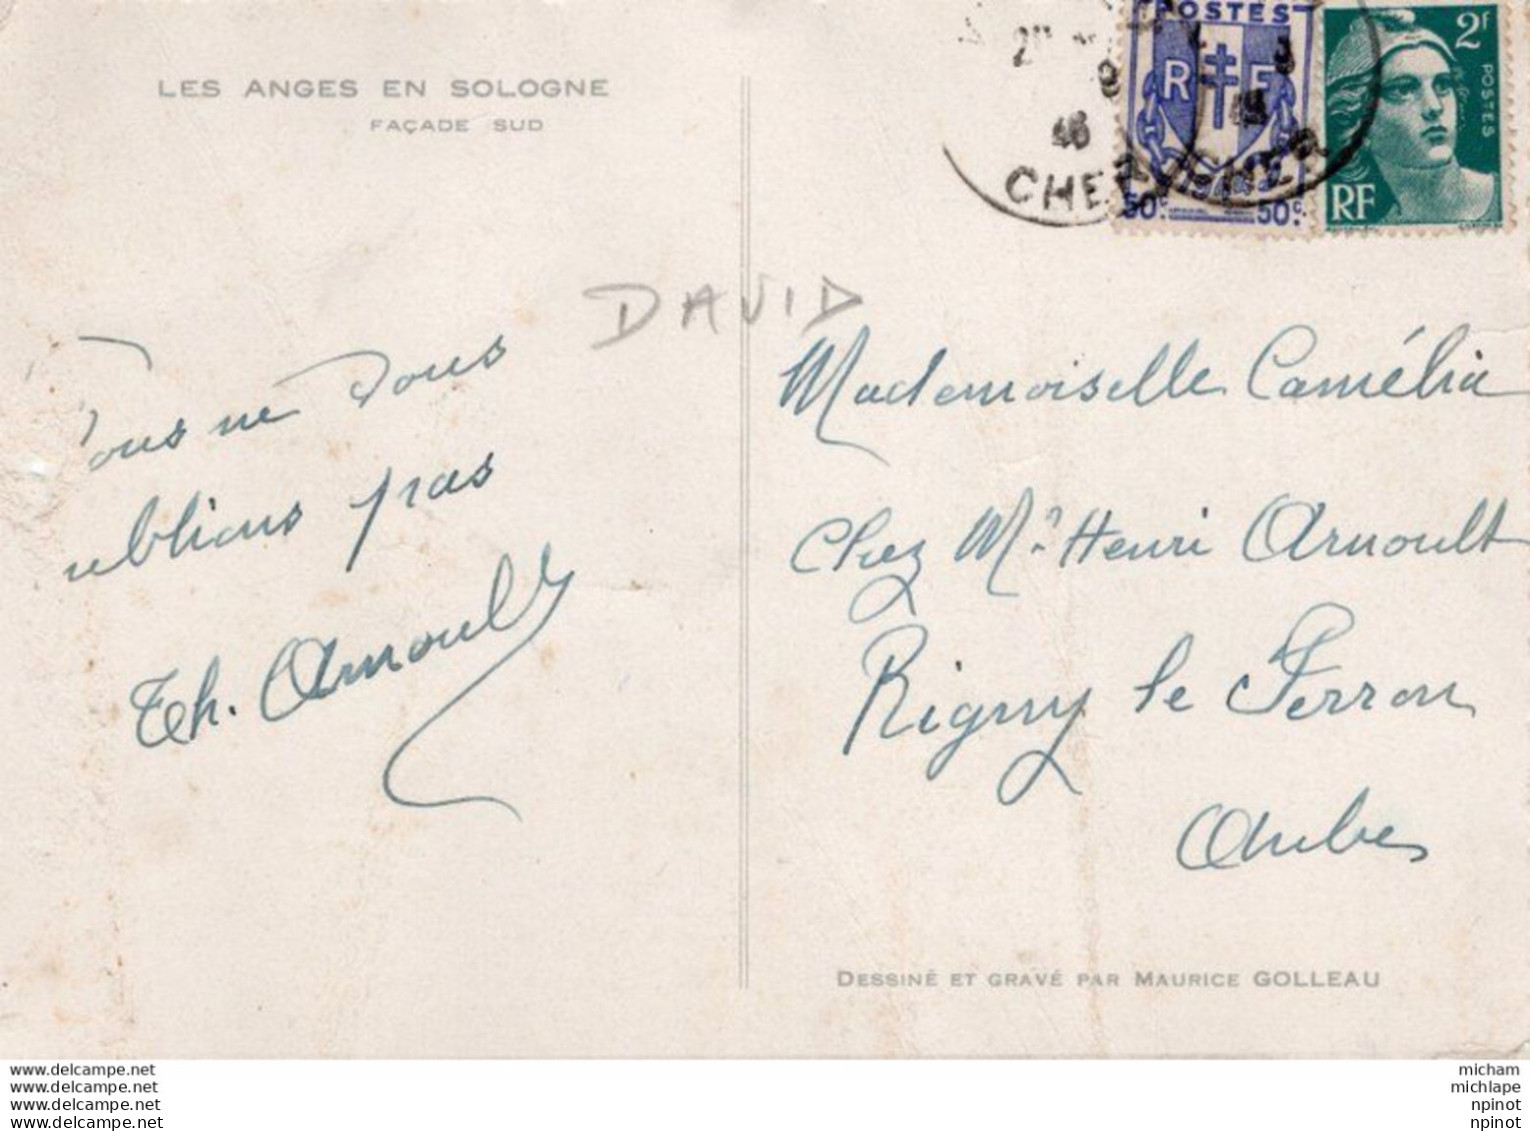 LES ANGES EN SOLOGNE
FAÇADE SUD
DAVID
ous ne vous
ublions pas
Th. Arnoult
POSTES
RF
50c 50c
2F
POSTES
RF
46
CHER
CHER
Mademoiselle Camélia
Chez Mr Henri Arnoult
Rigny le Ferron
Aube
DESSINÉ ET GRAVÉ PAR MAURICE GOLLEAU
www.delcampe.net
www.delcampe.net
www.delcampe.net
www.delcampe.net
micham
michlape
npinot
npinot